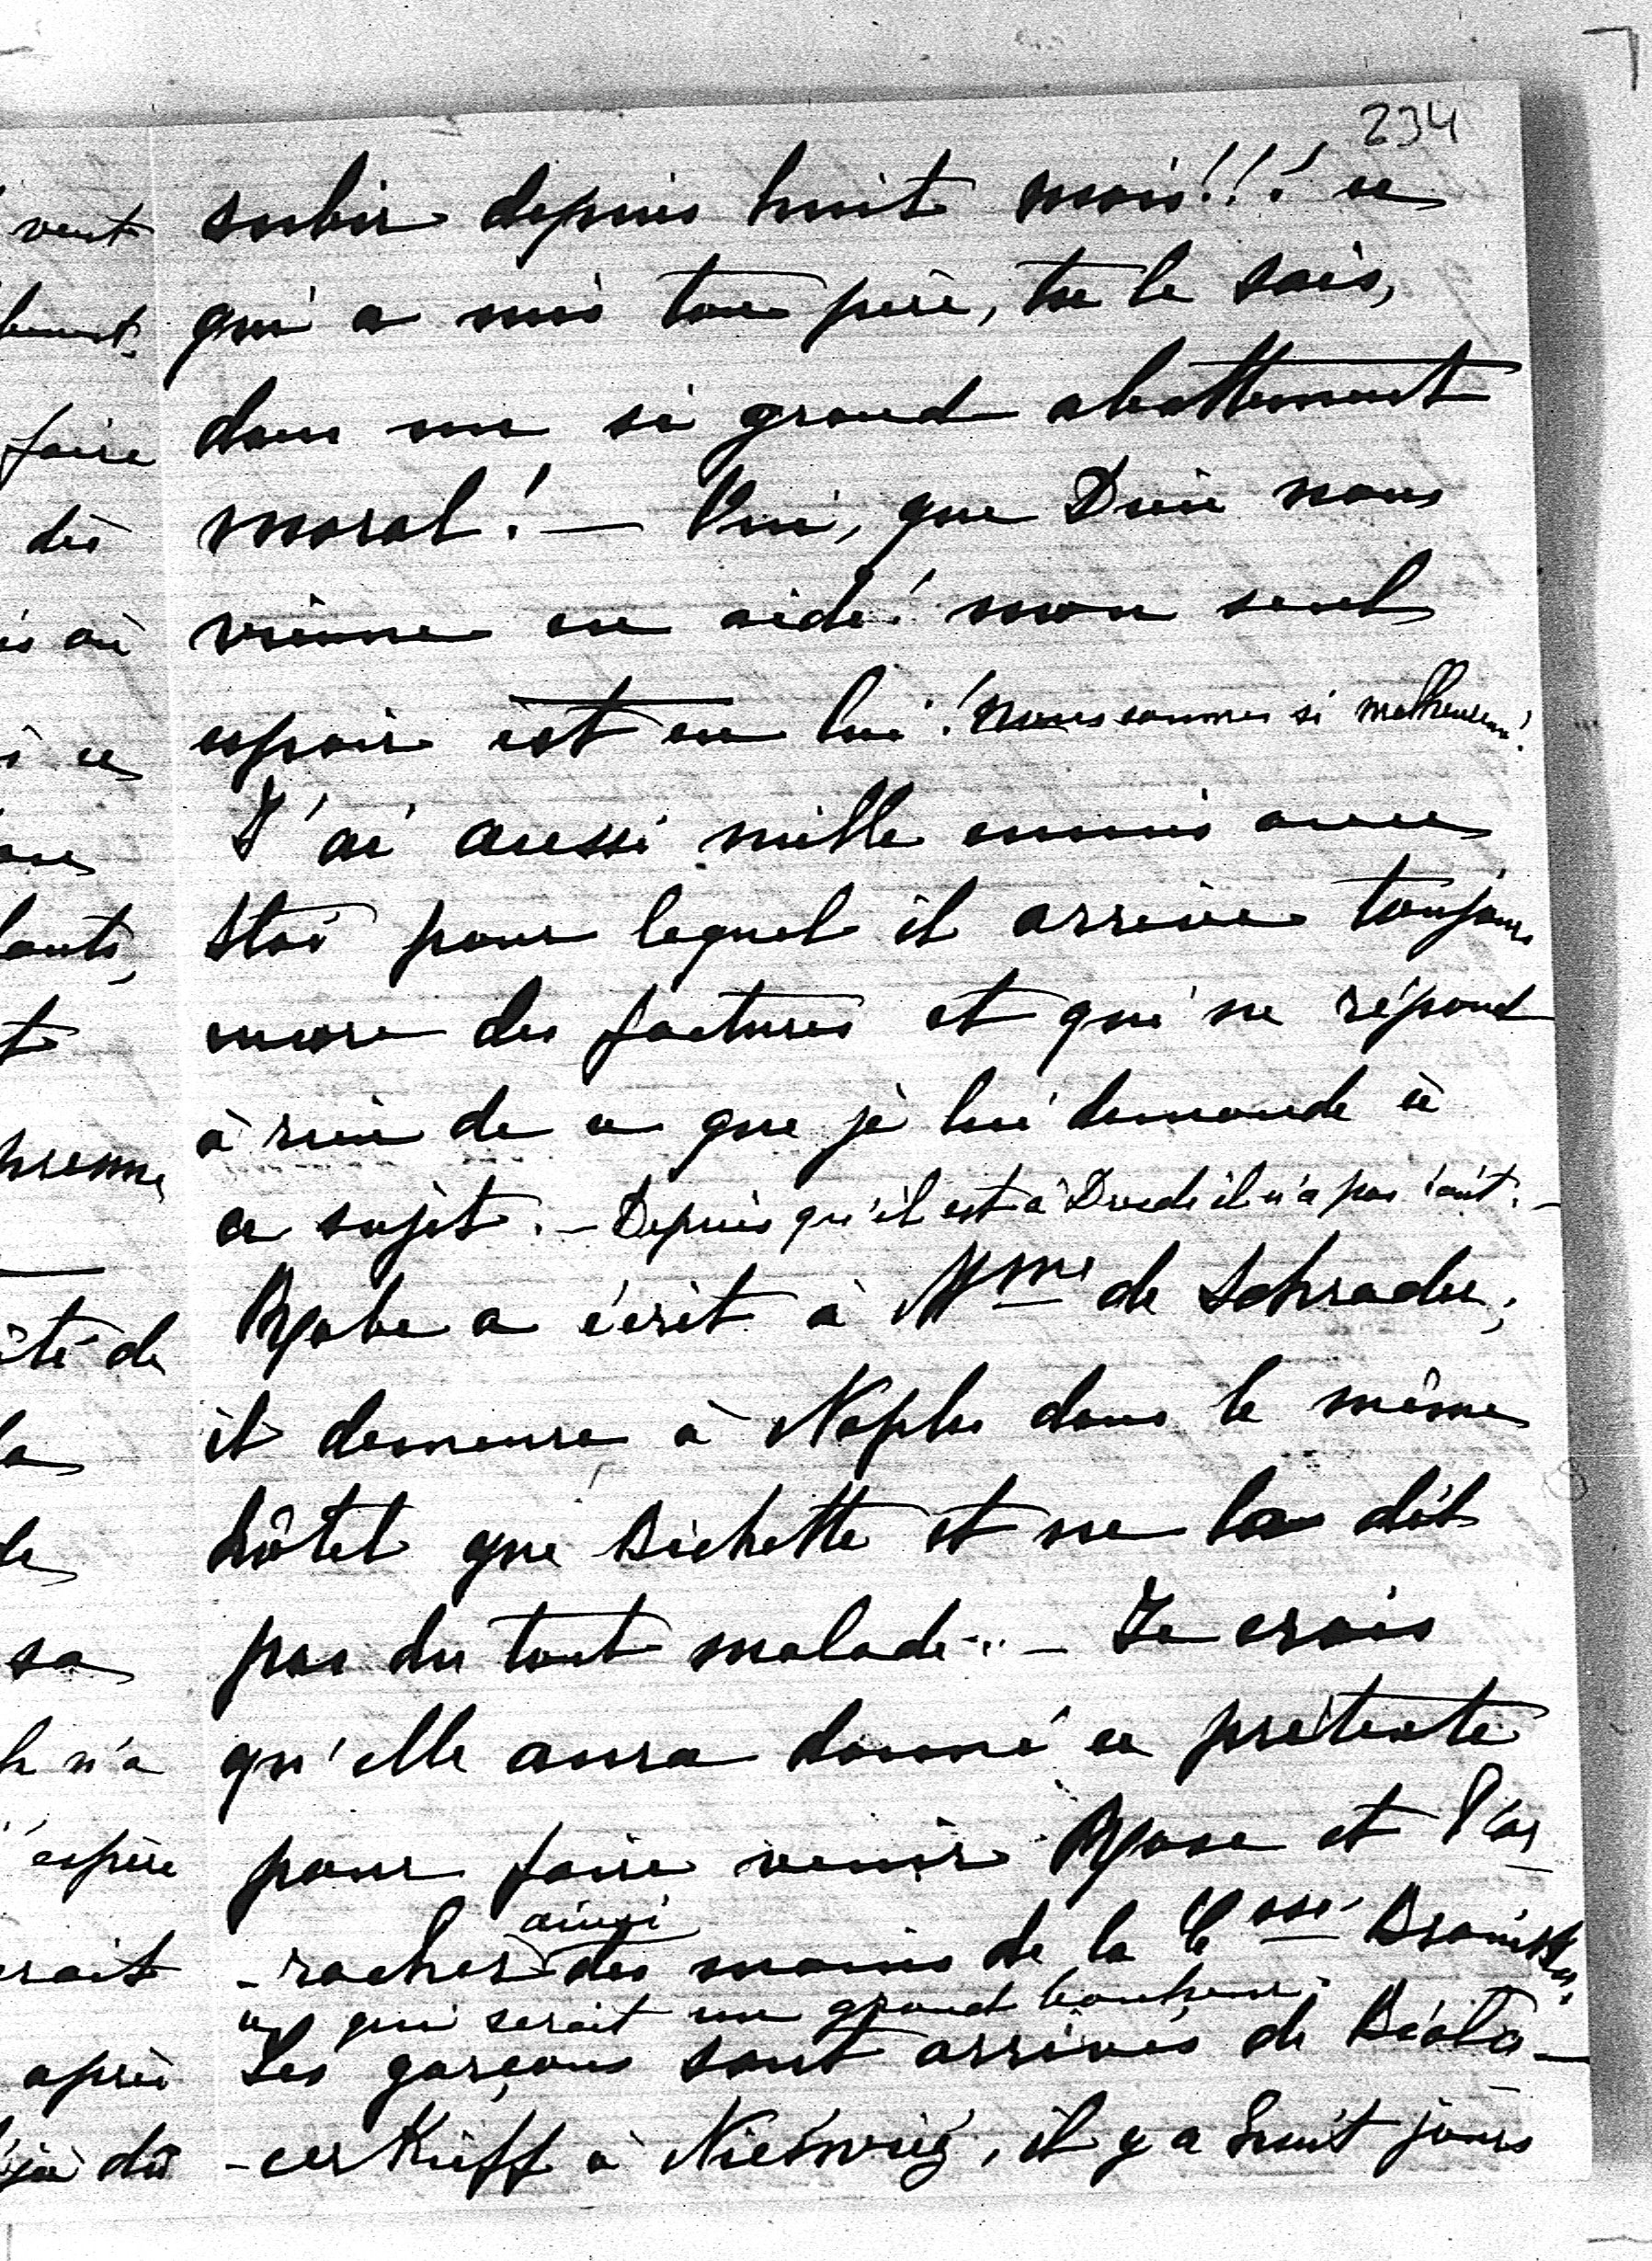 234
subir depuis huit mois!!! ce
qui a mis ton père, tu le sais,
dans un si grand abattement
moral! — Oui, que Dieu nous
vienne en aide! mon seul
espoir est en lui! Nous sommes si malheureux!
J'ai aussi mille ennuis avec
Stas pour lequel il arrive toujours
encore des factures et qui ne répond
à rien de ce que je lui demande à
ce sujet. — Depuis qu'il est à Dresde il n'a pas écrit. —
a écrit à Mme de Schrader,
il demeure à Naples dans le même
hôtel que Bichette et ne la dit
pas du tout malade... — Je crois
qu'elle aura donné ce prétexte
pour faire venir et l'ar-
-racher ainsi des mains de la Csse
ce qui serait un grand bonheur.
Les garçons sont arrivés de Biała-
-cerkieff à Nieśwież, il y a huit jours
vent
faire
dès
où
ce
t
té de
la
de
sa
n'a
espère
rait
après
dû